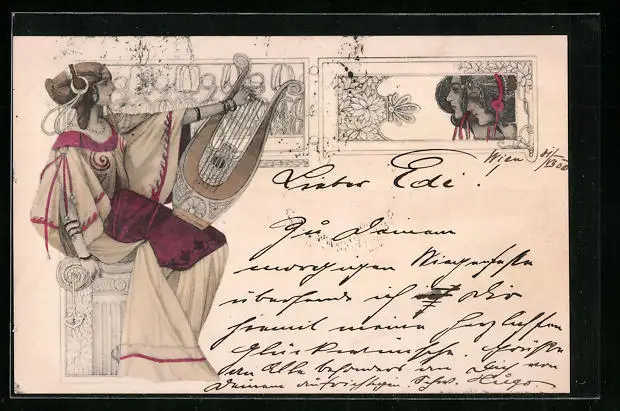 Wien, 5/I 1900
Lieber Edi!
Zu Deinem
morgigen Wiegenfeste
übersende ich Dir
hiermit meine herzlichsten
Glückwünsche. Grüße
an Alle besonders an Dich von
Deinem aufrichtigen Hugo.